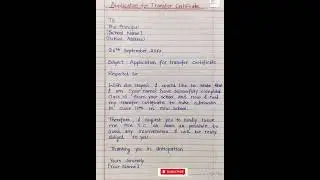 Application for Transfer Certificate
To
The Principal
[School Name]
[School Address]
26th September, 20
Subject : Application for transfer certificate
Respected Sir
With due respect, I would like to state that
I am (your name) have successfully completed
class 10th from your school and now I need
my transfer certificate to take admission to
class 11th in new school.
Therefore, I request you to kindly issue
me the T.C. as soon as possible to
avoid any inconvenience. I will be really
obliged to you.
Thanking you in anticipation
Yours sincerely
[Your Name]
SUBSCRIBE